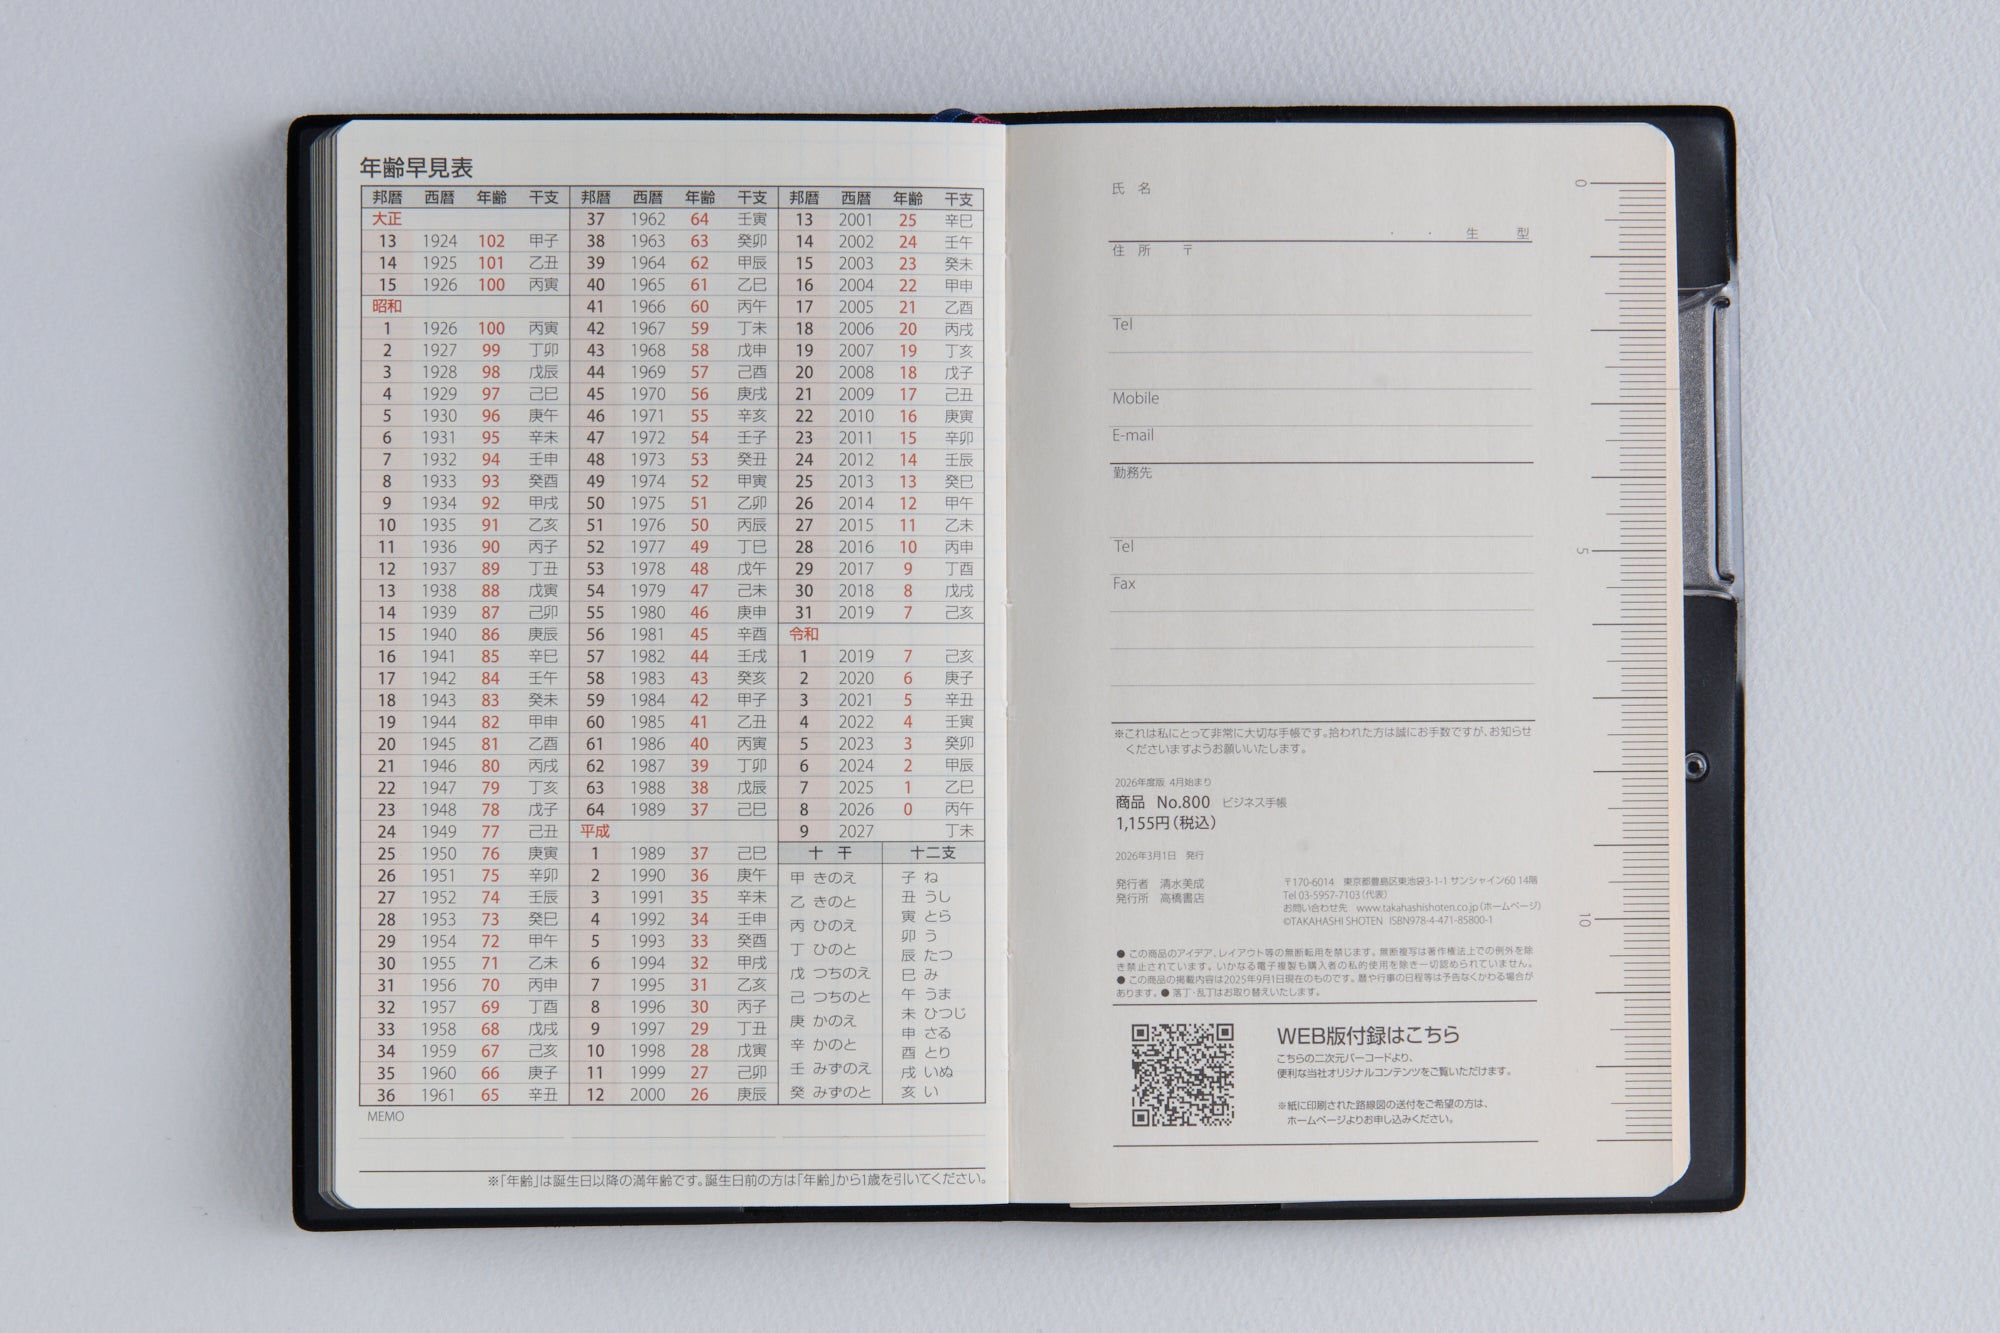 年齢早見表
邦暦 西暦 年齢 干支
大正
13 1924 102 甲子
14 1925 101 乙丑
15 1926 100 丙寅
昭和
1 1926 100 丙寅
2 1927 99 丁卯
3 1928 98 戊辰
4 1929 97 己巳
5 1930 96 庚午
6 1931 95 辛未
7 1932 94 壬申
8 1933 93 癸酉
9 1934 92 甲戌
10 1935 91 乙亥
11 1936 90 丙子
12 1937 89 丁丑
13 1938 88 戊寅
14 1939 87 己卯
15 1940 86 庚辰
16 1941 85 辛巳
17 1942 84 壬午
18 1943 83 癸未
19 1944 82 甲申
20 1945 81 乙酉
21 1946 80 丙戌
22 1947 79 丁亥
23 1948 78 戊子
24 1949 77 己丑
25 1950 76 庚寅
26 1951 75 辛卯
27 1952 74 壬辰
28 1953 73 癸巳
29 1954 72 甲午
30 1955 71 乙未
31 1956 70 丙申
32 1957 69 丁酉
33 1958 68 戊戌
34 1959 67 己亥
35 1960 66 庚子
36 1961 65 辛丑
邦暦 西暦 年齢 干支
37 1962 64 壬寅
38 1963 63 癸卯
39 1964 62 甲辰
40 1965 61 乙巳
41 1966 60 丙午
42 1967 59 丁未
43 1968 58 戊申
44 1969 57 己酉
45 1970 56 庚戌
46 1971 55 辛亥
47 1972 54 壬子
48 1973 53 癸丑
49 1974 52 甲寅
50 1975 51 乙卯
51 1976 50 丙辰
52 1977 49 丁巳
53 1978 48 戊午
54 1979 47 己未
55 1980 46 庚申
56 1981 45 辛酉
57 1982 44 壬戌
58 1983 43 癸亥
59 1984 42 甲子
60 1985 41 乙丑
61 1986 40 丙寅
62 1987 39 丁卯
63 1988 38 戊辰
64 1989 37 己巳
平成
1 1989 37 己巳
2 1990 36 庚午
3 1991 35 辛未
4 1992 34 壬申
5 1993 33 癸酉
6 1994 32 甲戌
7 1995 31 乙亥
8 1996 30 丙子
9 1997 29 丁丑
10 1998 28 戊寅
11 1999 27 己卯
12 2000 26 庚辰
邦暦 西暦 年齢 干支
13 2001 25 辛巳
14 2002 24 壬午
15 2003 23 癸未
16 2004 22 甲申
17 2005 21 乙酉
18 2006 20 丙戌
19 2007 19 丁亥
20 2008 18 戊子
21 2009 17 己丑
22 2010 16 庚寅
23 2011 15 辛卯
24 2012 14 壬辰
25 2013 13 癸巳
26 2014 12 甲午
27 2015 11 乙未
28 2016 10 丙申
29 2017 9 丁酉
30 2018 8 戊戌
31 2019 7 己亥
令和
1 2019 7 己亥
2 2020 6 庚子
3 2021 5 辛丑
4 2022 4 壬寅
5 2023 3 癸卯
6 2024 2 甲辰
7 2025 1 乙巳
8 2026 0 丙午
9 2027 丁未
十干
甲 きのえ
乙 きのと
丙 ひのえ
丁 ひのと
戊 つちのえ
己 つちのと
庚 かのえ
辛 かのと
壬 みずのえ
癸 みずのと
十二支
子 ね
丑 うし
寅 とら
卯 う
辰 たつ
巳 み
午 うま
未 ひつじ
申 さる
酉 とり
戌 いぬ
亥 い
MEMO
※「年齢」は誕生日以降の満年齢です。誕生日前の方は「年齢」から1歳を引いてください。
氏 名
・ ・ 生 型
住 所 〒
Tel
Mobile
E-mail
勤務先
Tel
Fax
※これは私にとって非常に大切な手帳です。拾われた方は誠にお手数ですが、お知らせ
くださいますようお願いいたします。
2026年度版 4月始まり
商品 No.800 ビジネス手帳
1,155円(税込)
2026年3月1日 発行
発行者 清水美成
発行所 高橋書店
〒170-6014 東京都豊島区東池袋3-1-1 サンシャイン60 14階
Tel 03-5957-7103(代表)
お問い合わせ先 www.takahashishoten.co.jp(ホームページ)
©TAKAHASHI SHOTEN ISBN978-4-471-85800-1
● この商品のアイデア、レイアウト等の無断転用を禁じます。無断複写は著作権法上での例外を除
き禁止されています。いかなる電子複製も購入者の私的使用を除き一切認められていません。
● この商品の掲載内容は2025年9月1日現在のものです。暦や行事の日程等は予告なくかわる場合が
あります。● 落丁・乱丁はお取り替えいたします。
WEB版付録はこちら
こちらの二次元バーコードより、
便利な当社オリジナルコンテンツをご覧いただけます。
※紙に印刷された路線図の送付をご希望の方は、
ホームページよりお申し込みください。
0
5
10